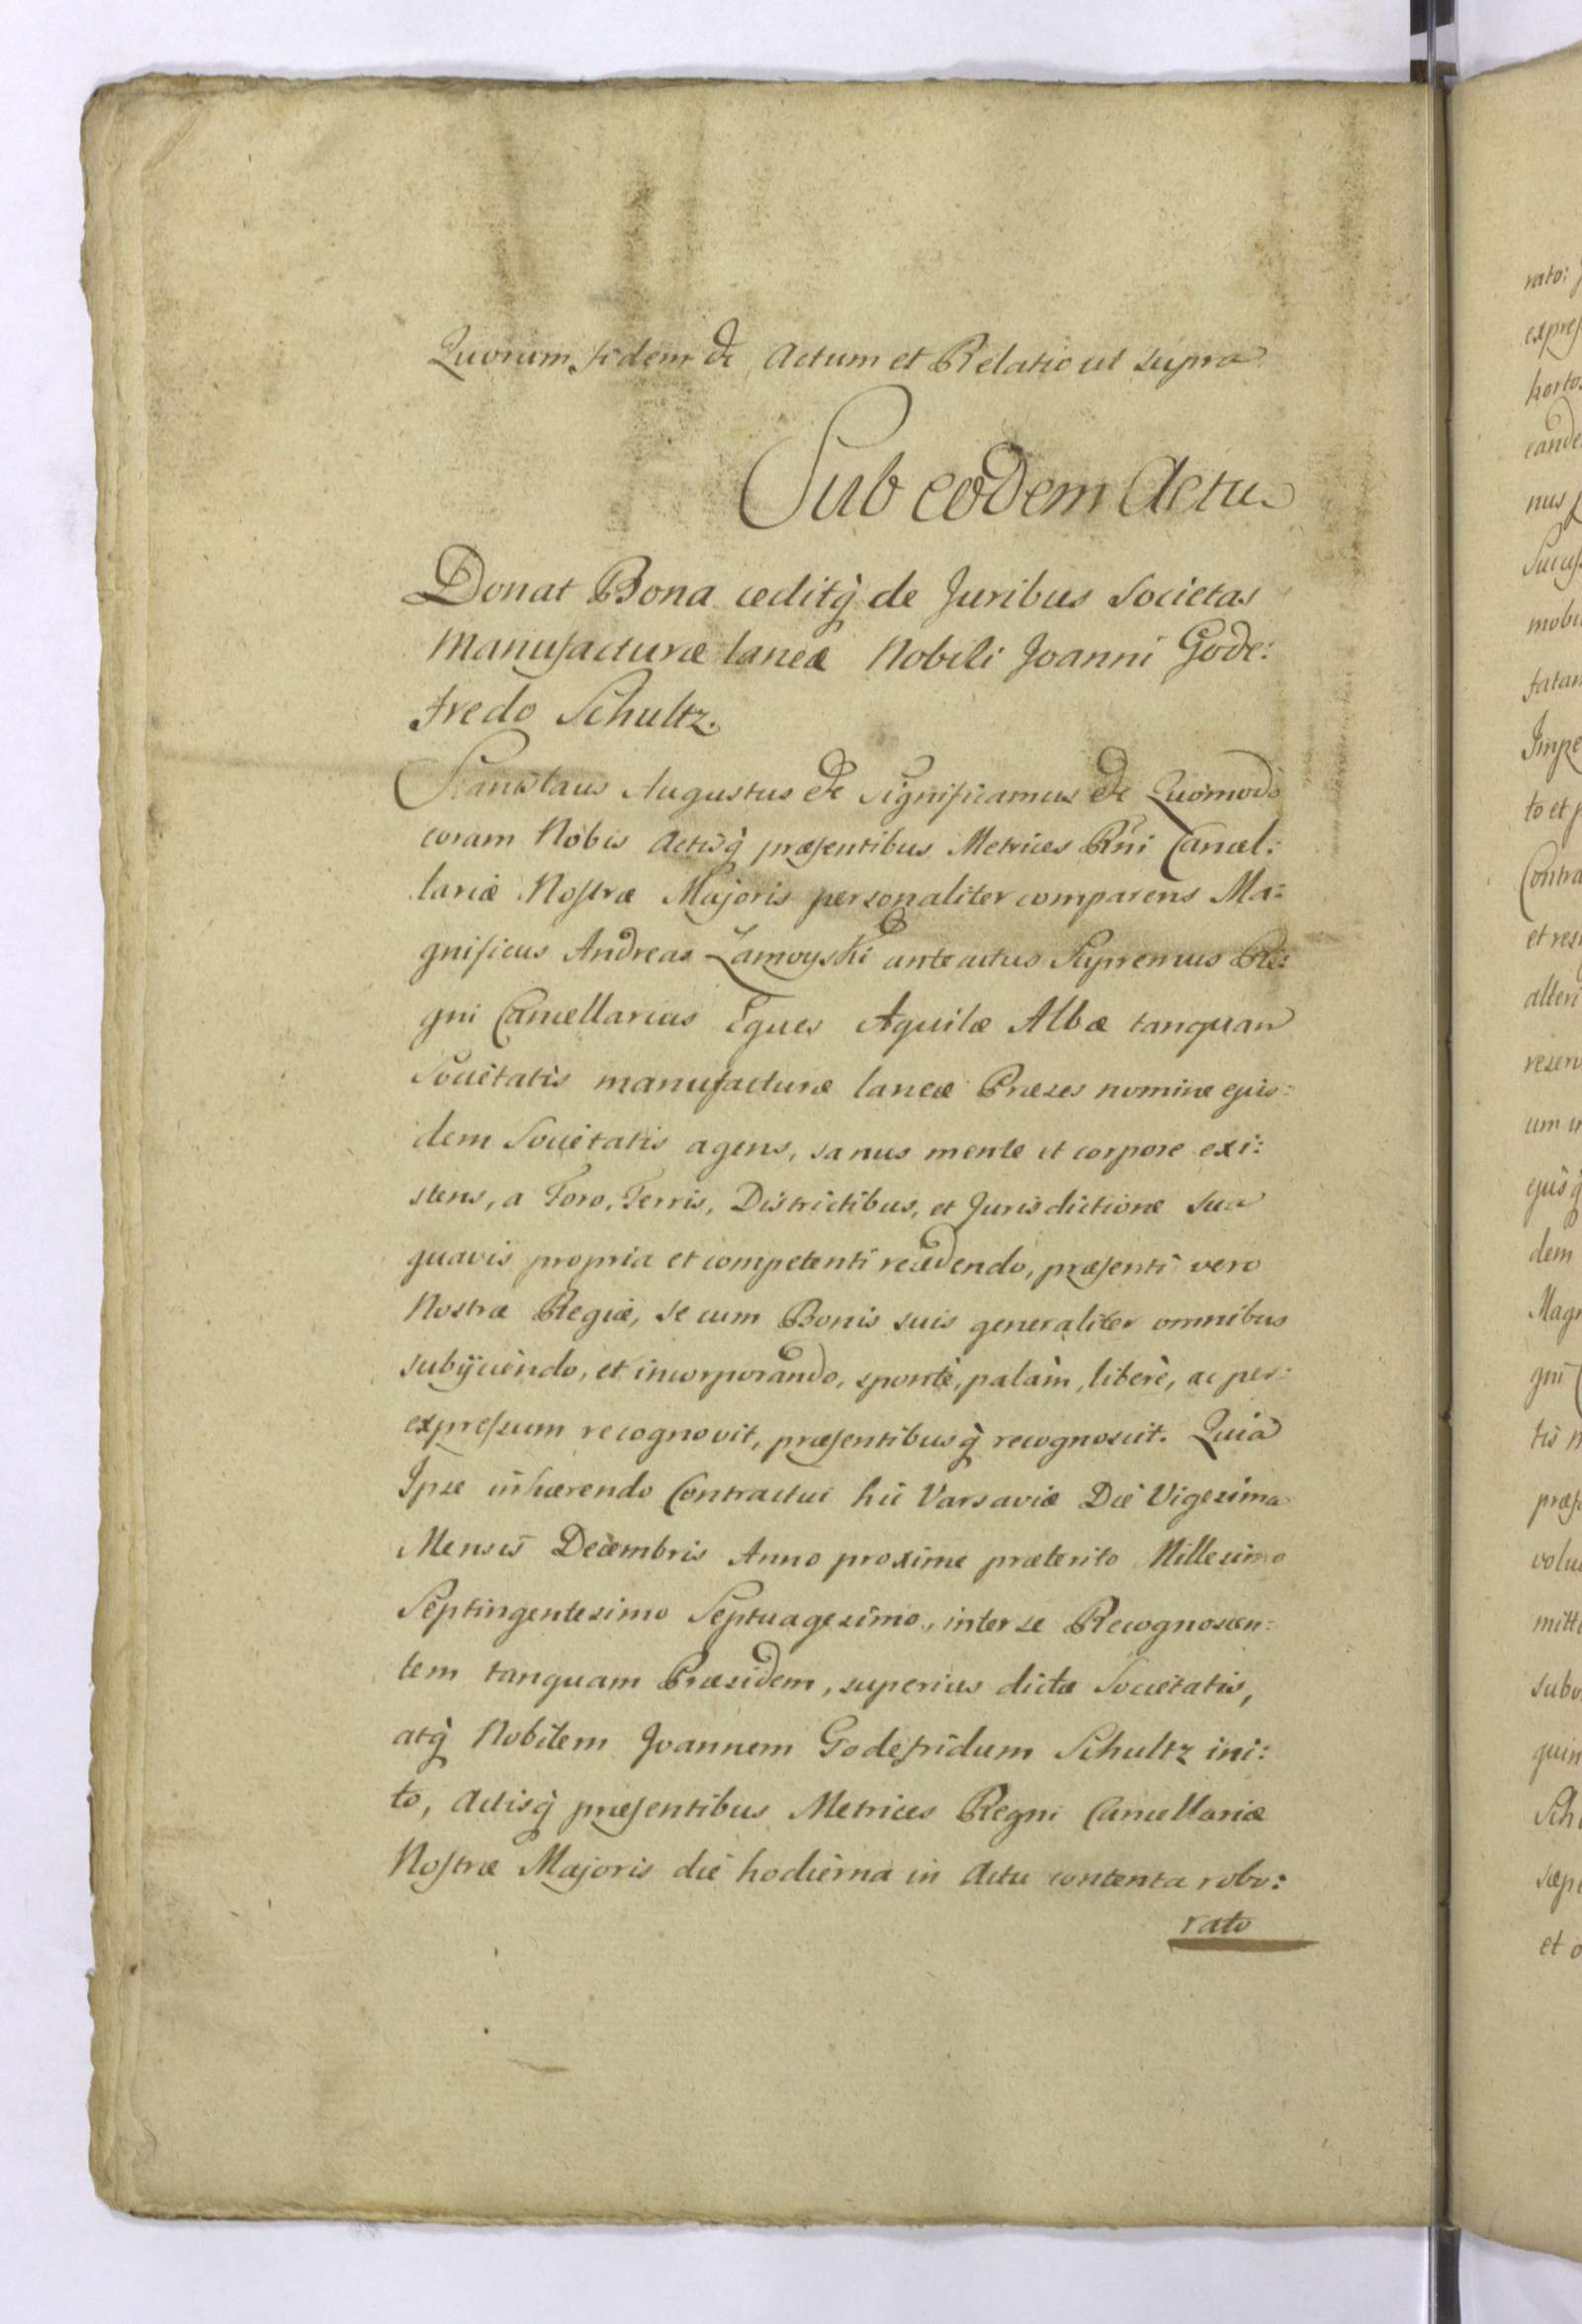 Quorum fidem &c Actum et Relatio ut supra
Sub eodem Actu
Donat Bona ceditq̀ de Juribus Societas
Manufacturæ laneæ Nobili Joanni Gode:
fredo Schultz.
Stanislaus Augustus &c Significamus &c Quomodo
coram Nobis Actisq̀ præsentibus Metrices Rñi Cancel:
lariæ Nostræ Majoris personaliter comparens Ma:
gnificus Andreas Zamoyski anteactus Supremus Re:
gni Cancellarius Eques Aquilæ Albæ tanquam
Societatis manufacturæ laneæ Præses nomine ejus:
dem Societatis agens, sanus mente et corpore exi:
stens, a Foro, Terris, Districtibus, et Jurisdictione sua
quavis propria et competenti recedendo, præsenti vero
Nostræ Regiæ, se cum Bonis suis generaliter omnibus
subijciendo, et incorporando, spontè, palàm, liberè, ac per:
expressum recognovit, præsentibusq̀ recognoscit. Quia
Ipse inhærendo Contractui hic Varsaviæ Die Vigesima
Mensis Decembris Anno proxime præterito Millesimo
Septingentesimo Septuagesimo, inter se Recognoscen:
tem tanquam Præsidem, superius dictæ Societatis,
atq̀ Nobilem Joannem Godefridum Schultz ini:
to, Actisq̀ præsentibus Metrices Regni Cancellariæ
Nostræ Majoris die hodierna in Actu contenta robo:
rato